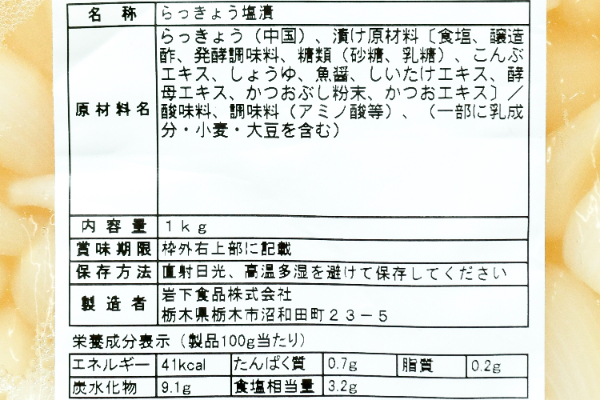 名称 らっきょう塩漬
原材料名 らっきょう（中国）、漬け原材料〔食塩、醸造
酢、発酵調味料、糖類（砂糖、乳糖）、こんぶ
エキス、しょうゆ、魚醤、しいたけエキス、酵
母エキス、かつおぶし粉末、かつおエキス〕／
酸味料、調味料（アミノ酸等）、（一部に乳成
分・小麦・大豆を含む）
内容量 1kg
賞味期限 枠外右上部に記載
保存方法 直射日光、高温多湿を避けて保存してください
製造者 岩下食品株式会社
栃木県栃木市沼和田町２３－５
栄養成分表示（製品100g当たり）
エネルギー 41kcal たんぱく質 0.7g 脂質 0.2g
炭水化物 9.1g 食塩相当量 3.2g